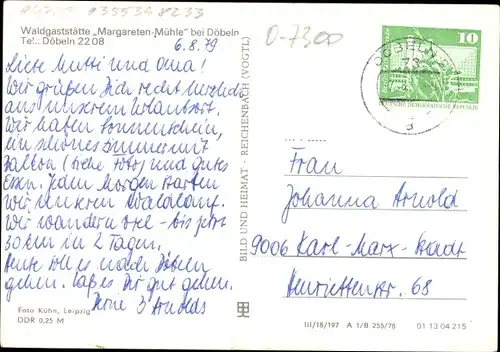 Waldgaststätte „Margareten-Mühle" bei Döbeln
Tel.: Döbeln 22 08
6.8.79
O-7300
Liebe Mutti und Oma!
Wir grüßen Dich recht herzlich
aus unserem Urlaubsort.
Wir haben Sonnenschein,
ein schönes Zimmer mit
Balkon (siehe Foto) und gutes
Essen. Jeden Morgen starten
wir unseren Waldlauf.
Wir wandern viel - bis jetzt
30 km in 2 Tagen.
Heute soll es nach Döbeln
gehen. Laß es Dir gut gehen.
Deine 3 Arnolds
Foto Kühn, Leipzig
DDR 0,25 M
BILD UND HEIMAT · REICHENBACH (VOGTL)
10
DÖBELN
73
DEUTSCHE DEMOKRATISCHE REPUBLIK
Frau
Johanna Arnold
9006 Karl-Marx-Stadt
Henriettenstr. 68
III/18/197 A 1/B 255/78 01 13 04 215